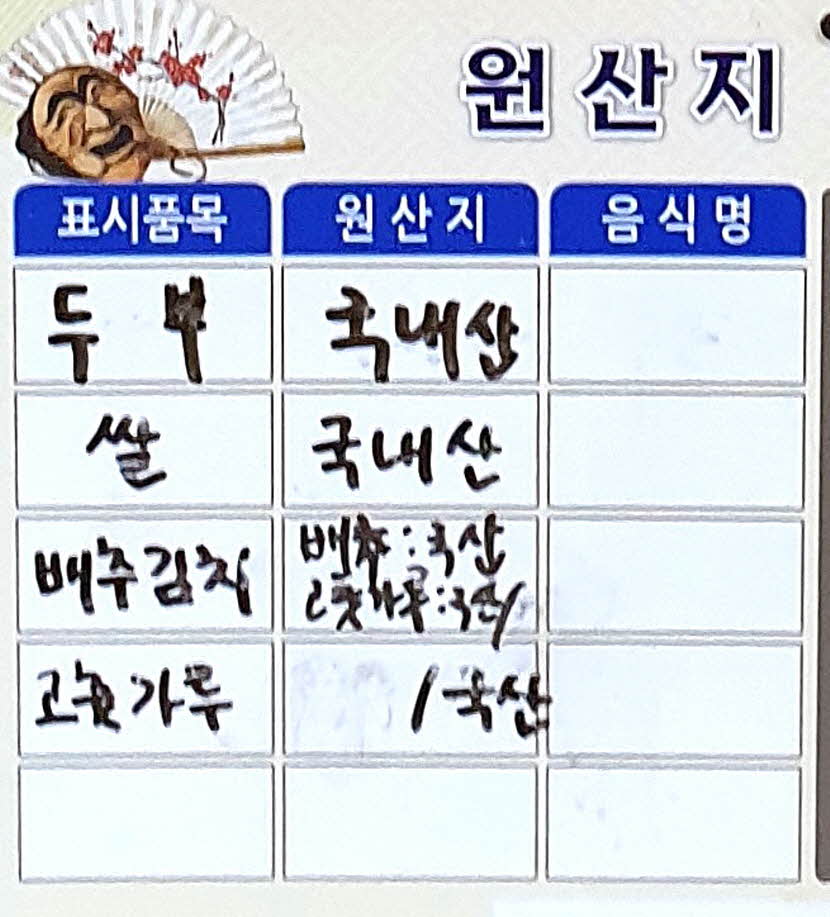 원산지
표시품목 원산지 음식명
두부 국내산
쌀 국내산
배추김치 배추:국산
고춧가루:국산/
고춧가루 /국산